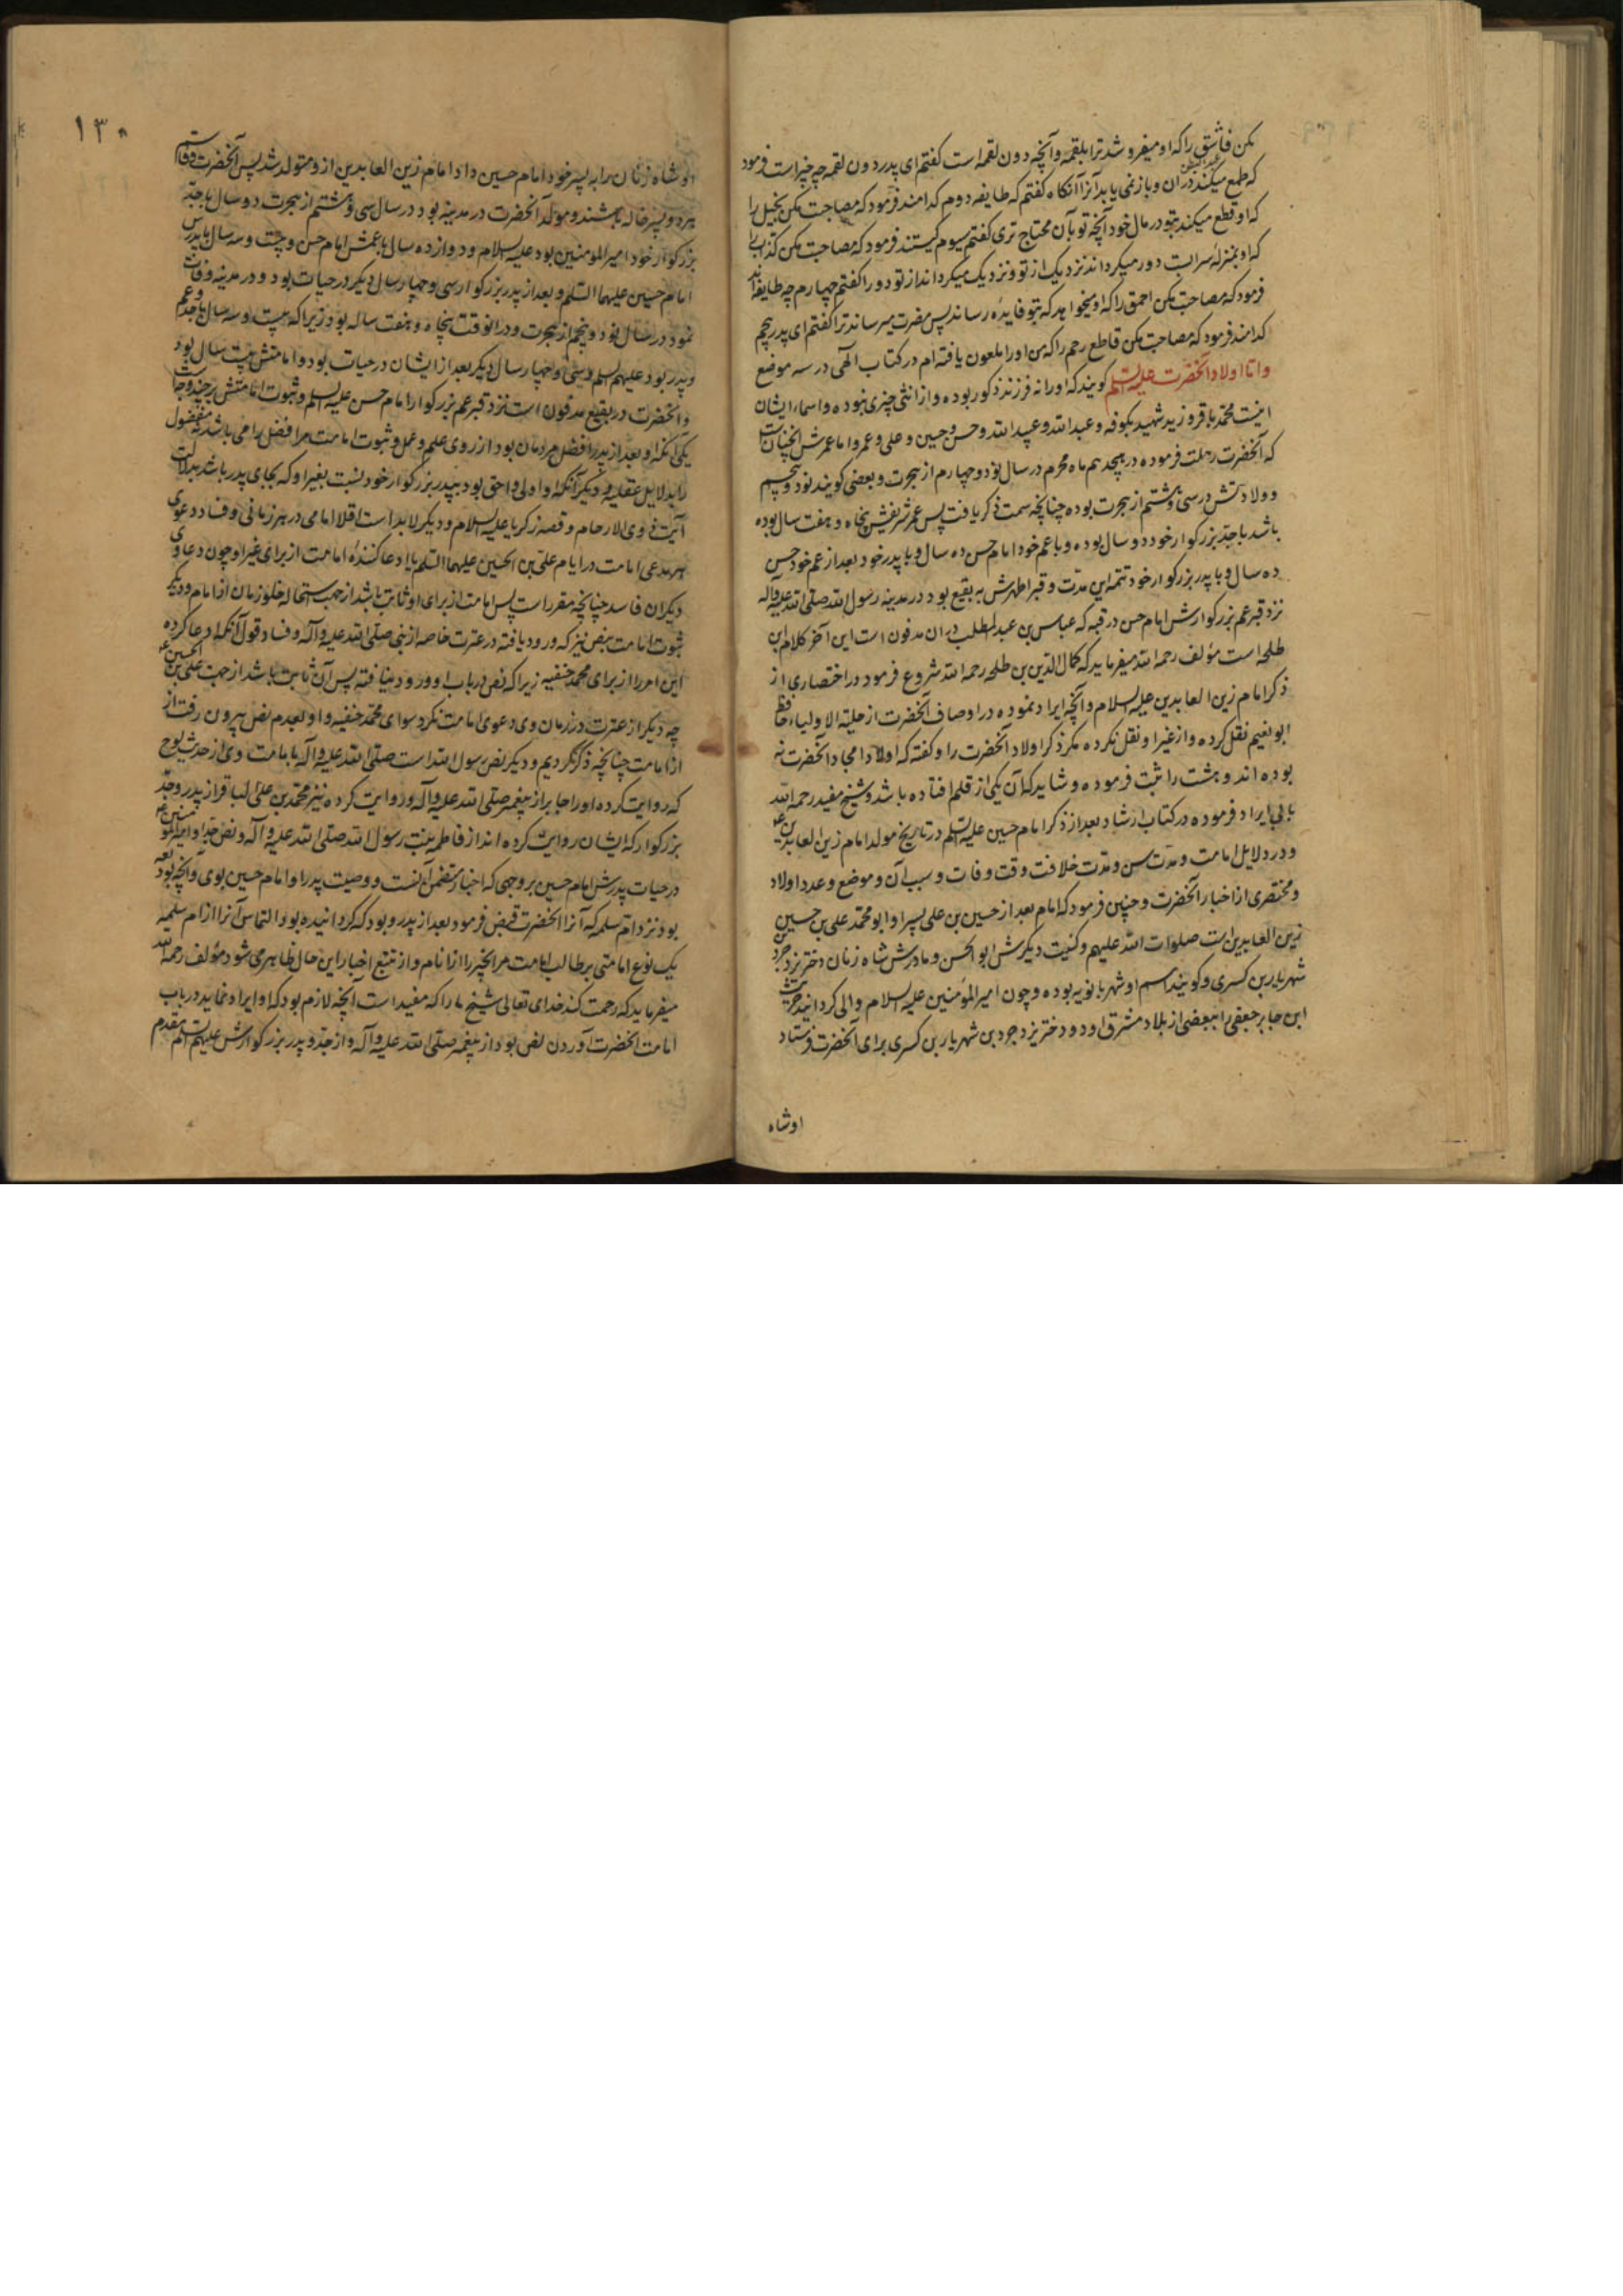 مکن فاسقی را که او میفروشد ترا بلقمه و آنچه دون لقمه است گفتم ای پدر دون لقمه چه چیز است فرمود
که طمع میکند در ان و باز نمی یابد آنرا آنکاه گفتم که طایفه دوم کدامند فرمود که مصاحبت مکن بخیل را
که او قطع میکند بتو در مال خود آنچه تو بآن محتاج تری گفتم سیوم کیستند فرمود که مصاحبت مکن کذاب را
که او بمنزلهٔ سراب است دور میکرداند نزدیک از تو و نزدیک میکرداند از تو دور را گفتم چهارم چه طایفه اند
فرمود که مصاحبت مکن احمق را که او میخواهد که بتو فایده رساند پس مضرت میرساند ترا گفتم ای پدر پنجم
کدامند فرمود که مصاحبت مکن قاطع رحم را که من او را ملعون یافته ام در کتاب الهی در سه موضع
واما اولاد آنحضرت علیه السلم کویند که او را نه فرزند ذکور بوده و از انثی چیزی نبوده و اسماء ایشان
اینست محمد باقر و زید شهید بکوفه و عبد الله و عبید الله و حسن و حسین و علی و عمر و اما عمرش آنچنان است
که آنحضرت رحلت فرموده در هیجدهم ماه محرم در سال نود و چهارم از هجرت و بعضی کویند نود و پنجم
و ولادتش در سی و هشتم از هجرت بوده چنانچه سمت ذکر یافت پس عمر شریفش پنجاه و هفت سال بوده
باشد با جد بزرکوار خود دو سال بوده و با عم خود امام حسن ده سال و با پدر خود بعد از عم خود حسن
ده سال و با پدر بزرکوار خود تتمه این مدت و قبر اطهرش به بقیع بود در مدینه رسول الله صلی الله علیه وآله
نزد قبر عم بزرکوارش امام حسن در قبه که عباس بن عبد المطلب در ان مدفون است این آخر کلام ابن
طلحه است مؤلف رحمه الله میفرماید که کمال الدین بن طلحه رحمه الله شروع فرمود در اختصاری از
ذکر امام زین العابدین علیه السلام و آنچه ایراد نموده در اوصاف آنحضرت از حلیة الاولیاء حافظ
ابو نعیم نقل کرده و از غیر او نقل نکرده مکر ذکر اولاد آنحضرت را و کفته که اولاد امجاد آنحضرت نه
بوده اند و هشت را ثبت فرموده و شاید که آن یکی از قلم افتاده باشد و شیخ مفید رحمه الله
بابی ایراد فرموده در کتاب ارشاد بعد از ذکر امام حسین علیه السلم در تاریخ مولد امام زین العابدین
و در دلایل امامت و مدت سن و مدت خلافت و وقت وفات و سبب آن و موضع و عدد اولاد
و مختصری از اخبار آنحضرت و چنین فرمود که امام بعد از حسین بن علی پسر او ابو محمد علی بن حسین
زین العابدین است صلوات الله علیهم و کنیت دیکرش ابو الحسن و مادرش شاه زنان دختر یزدجرد بن
شهریار بن کسری و کویند اسم او شهربانویه بوده و چون امیر المؤمنین علیه السلام والی کردانید حریث
ابن جابر جعفی را ببعضی از بلاد مشرق او دو دختر یزدجرد بن شهریار بن کسری برای آنحضرت فرستاد
او شاه
۱۳۰
او شاه زنان را به پسر خود امام حسین داد امام زین العابدین از و متولد شد پس آنحضرت و قاسم
هر دو پسر خاله باشند و مولد آنحضرت در مدینه بود در سال سی و هشتم از هجرت دو سال با جد
بزرکوار خود امیر المومنین بود علیه السلام و دوازده سال با عمش امام حسن و بیست و سه سال با پدرش
امام حسین علیهما السلم و بعد از پدر بزرکوار سی و چهار سال دیکر در حیات بود و در مدینه وفات
نمود در سال نود و پنجم از هجرت و در انوقت پنجاه و هفت ساله بود زیرا که بیست و سه سال با جد و عم
و پدر بود علیهم السلم و سی و چهار سال دیکر بعد از ایشان در حیات بود و امامتش بیست سال بود
و آنحضرت در بقیع مدفون است نزد قبر عم بزرکوار امام حسن علیه السلم و ثبوت امامتش بر چند وجه است
یکی آنکه او بعد از پدر افضل مردمان بود از روی علم و عمل و ثبوت امامت مر افضل را می باشد نه مفضول
را بدلایل عقلیه دیکر آنکه او اولی و احق بود بپدر بزرکوار خود نسبت بغیر او که بجای پدر باشد بدلالت
آیت ذوی الارحام و قصه زکریا علیه السلام و دیکر لابد است اقلا امامی در هر زمانی و فساد دعوی
هر مدعی امامت در ایام علی بن الحسین علیهما السلم یا ادعا کننده امامت از برای غیر او چون دعاوی
دیکران فاسد چنانچه مقرر است پس امامت از برای او ثابت باشد از جهت استحاله خلو زمان از امام و دیکر
ثبوت امامت بنص نیز که ورود یافته در عترت خاصه از نبی صلی الله علیه وآله و فساد قول آنکه ادعا کرده
این امر را از برای محمد حنفیه زیرا که نص در باب او ورود نیافته پس آن ثابت باشد از جهت علی بن الحسین
چه دیکر از عترت در زمان وی دعوی امامت نکرد سوای محمد حنفیه و او بعدم نص بیرون رفت از
از امامت چنانچه ذکر کردیم و دیکر نص رسول الله است صلی الله علیه وآله بامامت وی از حدیث لوح
که روایت کرده او را جابر از پیغمبر صلی الله علیه وآله و روایت کرده نیز محمد بن علی الباقر از پدر و جد
بزرکوار که ایشان روایت کرده اند از فاطمه بنت رسول الله صلی الله علیه وآله و نص جد او امیر المؤمنین
در حیات پدرش امام حسین بر وجهی که اخبار متضمن آنست و وصیت پدر او امام حسین بوی و آنچه
بود نزد ام سلمه که آنرا آنحضرت قبض فرمود بعد از پدر و بود که کردانیده بود التماس آنرا از ام سلمه
یک نوع امامتی بر طالب امامت مر آنچیز را از انام و از تتبع اخبار این حال ظاهر می شود مؤلف رحمه الله
میفرماید که رحمت کند خدای تعالی شیخ ما را که مفید است آنچه لازم بود که او ایراد نماید در باب
امامت آنحضرت آوردن نص بود از پیغمبر صلی الله علیه وآله و از جد و پدر بزرکوارش علیهم السلم